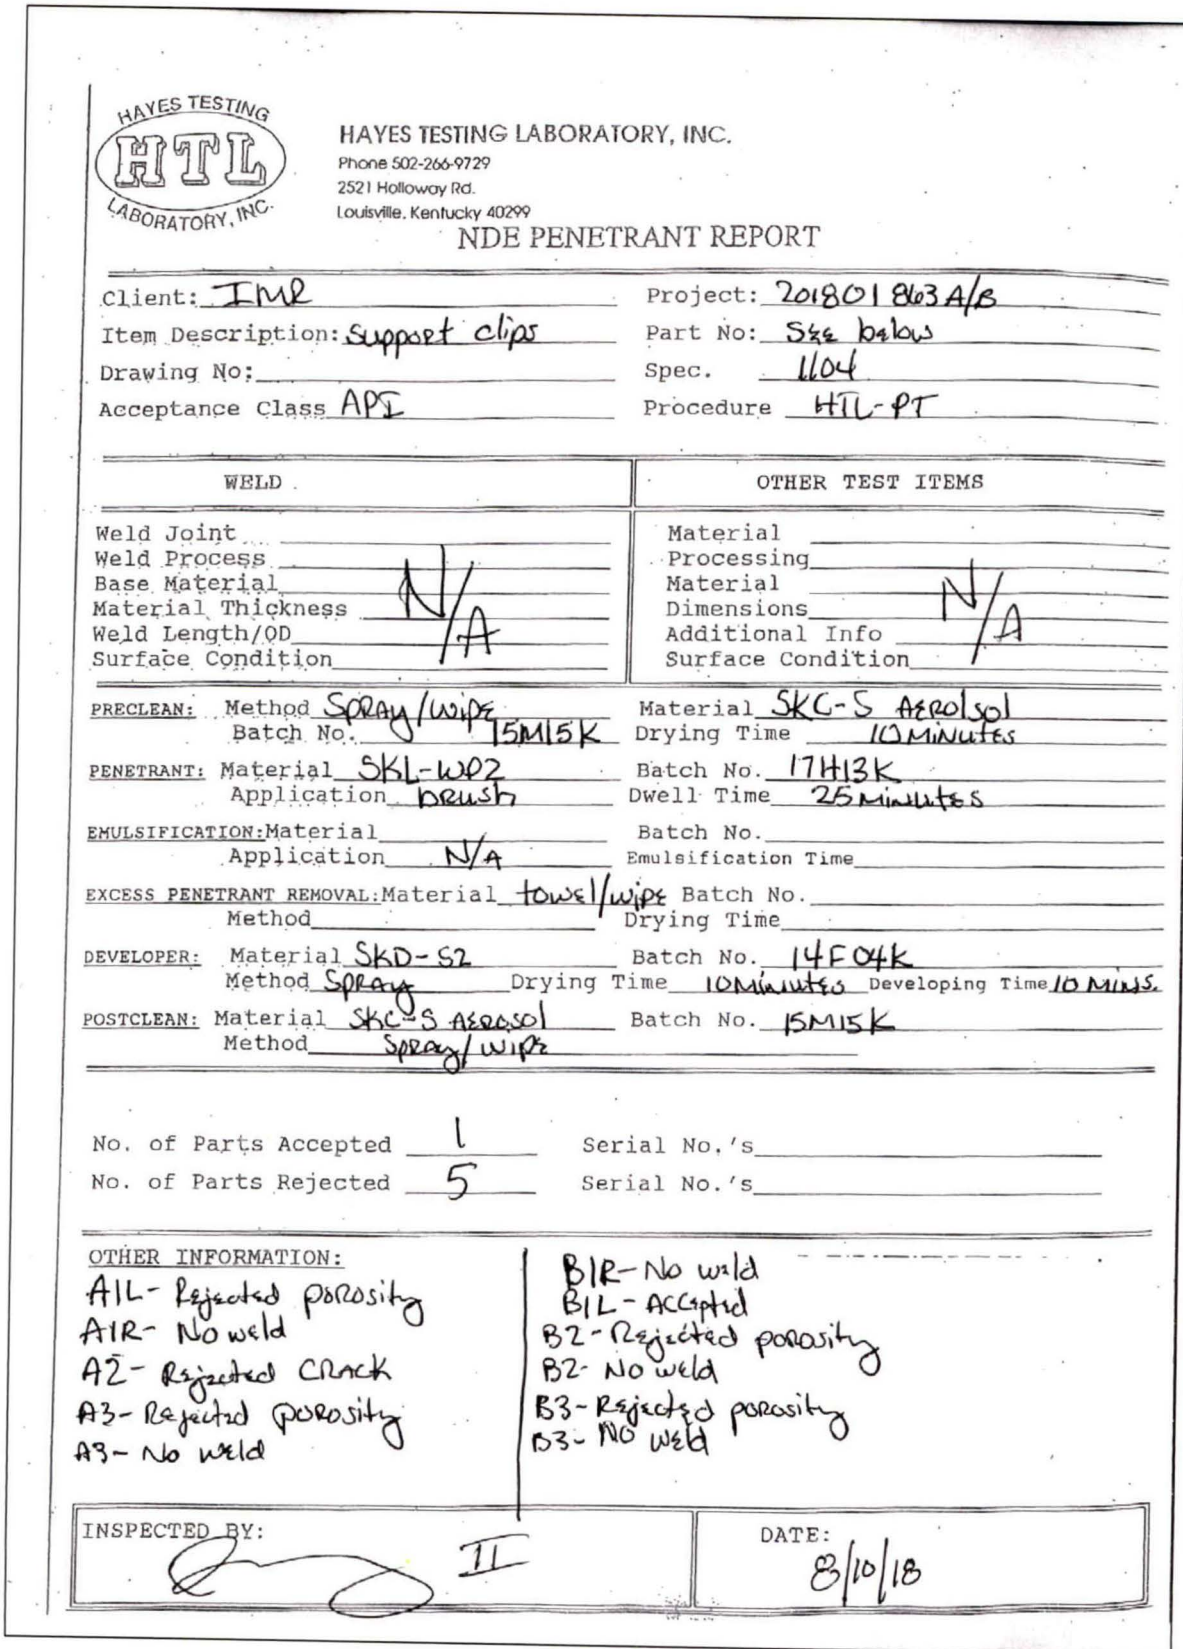 HAYES TESTING
HTL
LABORATORY, INC.
HAYES TESTING LABORATORY, INC.
Phone 502-266-9729
2521 Holloway Rd.
Louisville, Kentucky 40299
NDE PENETRANT REPORT
Client: IMR Project: 201801863A/B
Item Description: Support clips Part No: See below
Drawing No: Spec. 1104
Acceptance Class API Procedure HTL-PT
WELD OTHER TEST ITEMS
Weld Joint Material
Weld Process Processing
Base Material Material
Material Thickness Dimensions
Weld Length/OD Additional Info
Surface Condition Surface Condition
N/A N/A
PRECLEAN: Method Spray/Wipe Material SKC-S AERolsol
Batch No. 15M15K Drying Time 10 Minutes
PENETRANT: Material SKL-WP2 Batch No. 17H13K
Application brush Dwell Time 25 Minutes
EMULSIFICATION: Material Batch No.
Application N/A Emulsification Time
EXCESS PENETRANT REMOVAL: Material towel/wipe Batch No.
Method Drying Time
DEVELOPER: Material SKD-S2 Batch No. 14F04K
Method Spray Drying Time 10 Minutes Developing Time 10 Mins.
POSTCLEAN: Material SKC-S Aerosol Batch No. 15M15K
Method Spray/Wipe
No. of Parts Accepted 1 Serial No.'s
No. of Parts Rejected 5 Serial No.'s
OTHER INFORMATION:
A1L- Rejected porosity
A1R- No weld
A2- Rejected CRACK
A3- Rejected porosity
A3- No weld
B1R- No weld
B1L- Accepted
B2- Rejected porosity
B2- No weld
B3- Rejected porosity
B3- No weld
INSPECTED BY: II DATE:
8/10/18